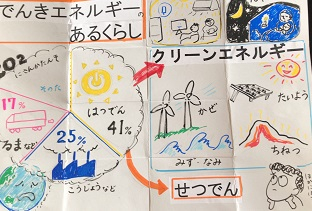 でんきエネルギーの
あるくらし
CO2
にさんかたんそ
そのた
17%
くるまなど
はつでん
41%
25%
こうじょうなど
クリーンエネルギー
かぜ
たいよう
みず・なみ
ちねつ
せつでん